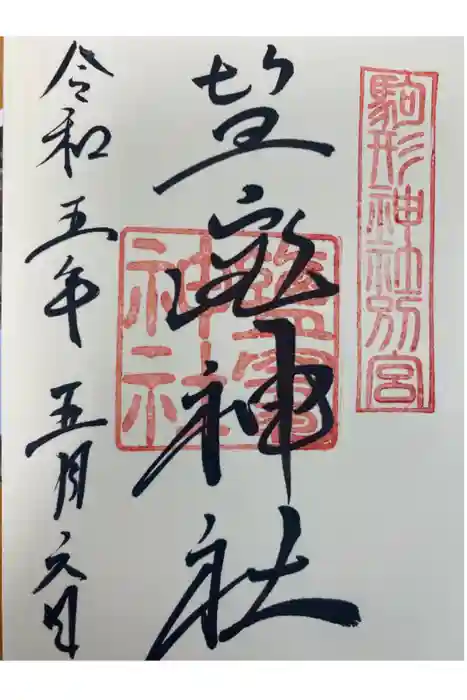 駒形神社別宮
塩竈神社
鹽竈
神社
令和五年 五月六日